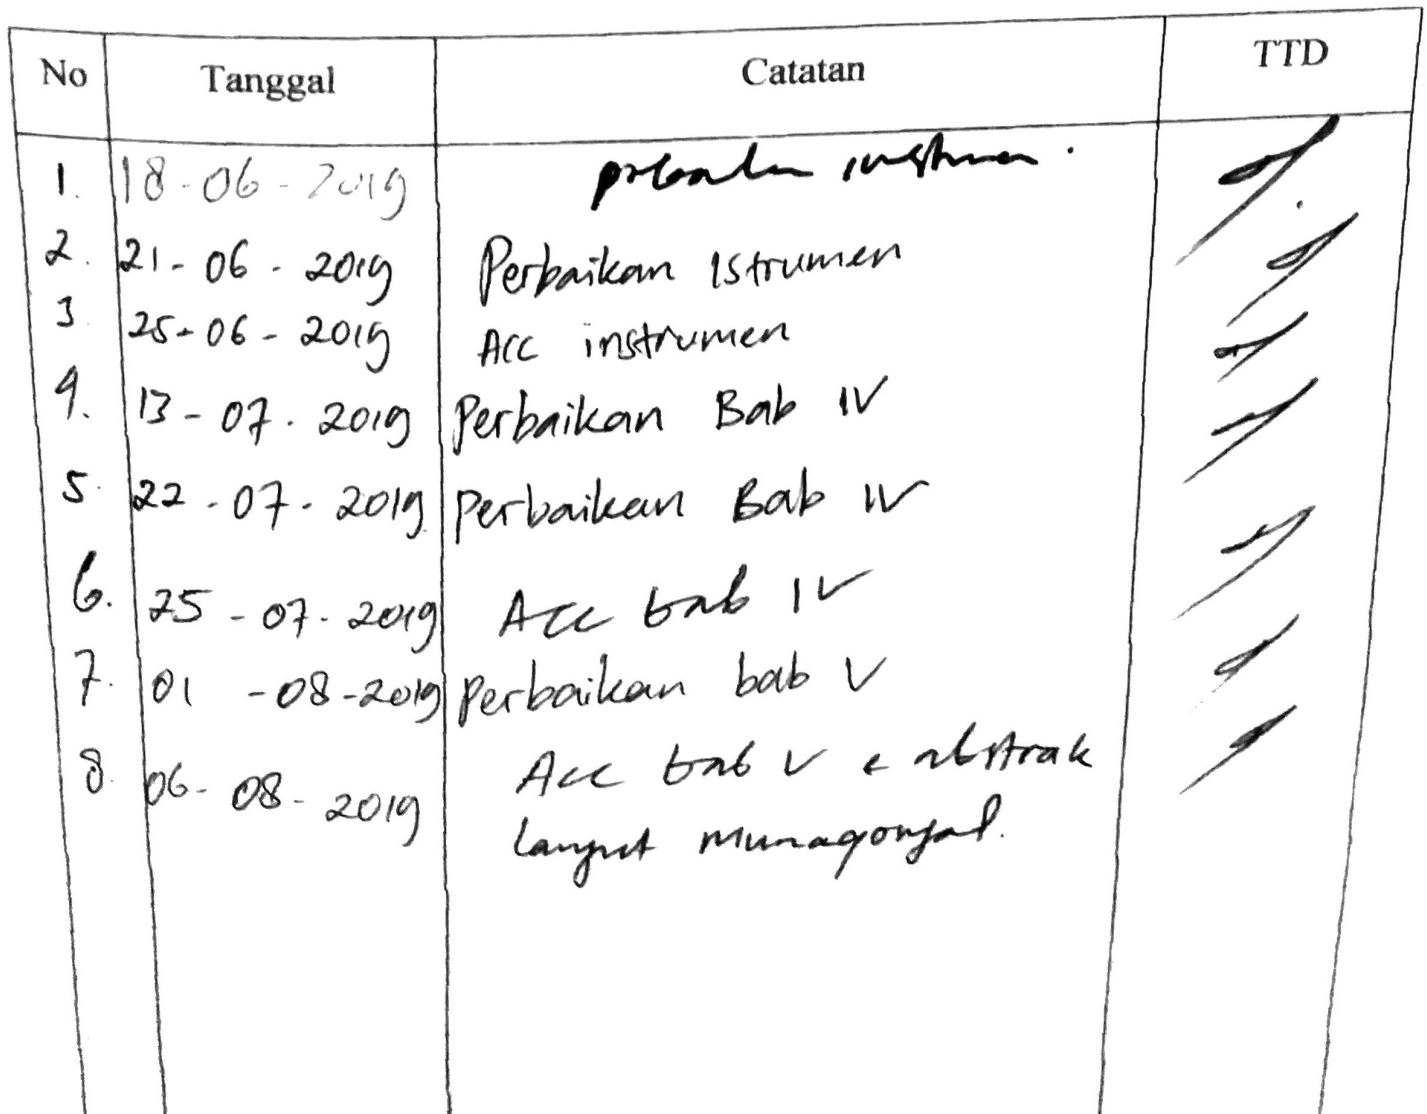 No Tanggal Catatan TTD
1. 18-06-2019
2. 21-06-2019 Perbaikan Istrumen
3. 25-06-2019 Acc instrumen
4. 13-07-2019 Perbaikan Bab IV
5. 22-07-2019 Perbaikan Bab IV
6. 25-07-2019 Acc bab IV
7. 01-08-2019 Perbaikan bab V
8. 06-08-2019 Acc bab V & abstrak